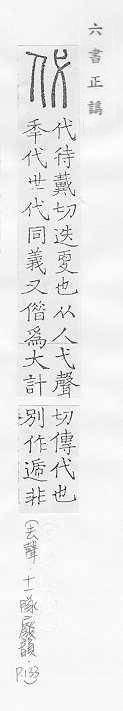 六書正譌
代
代待戴切迭更也从人弋聲
秊代世代同義又借爲大計
切傳代也
別作遞非
(去聲·十一隊廢韻·P.133)